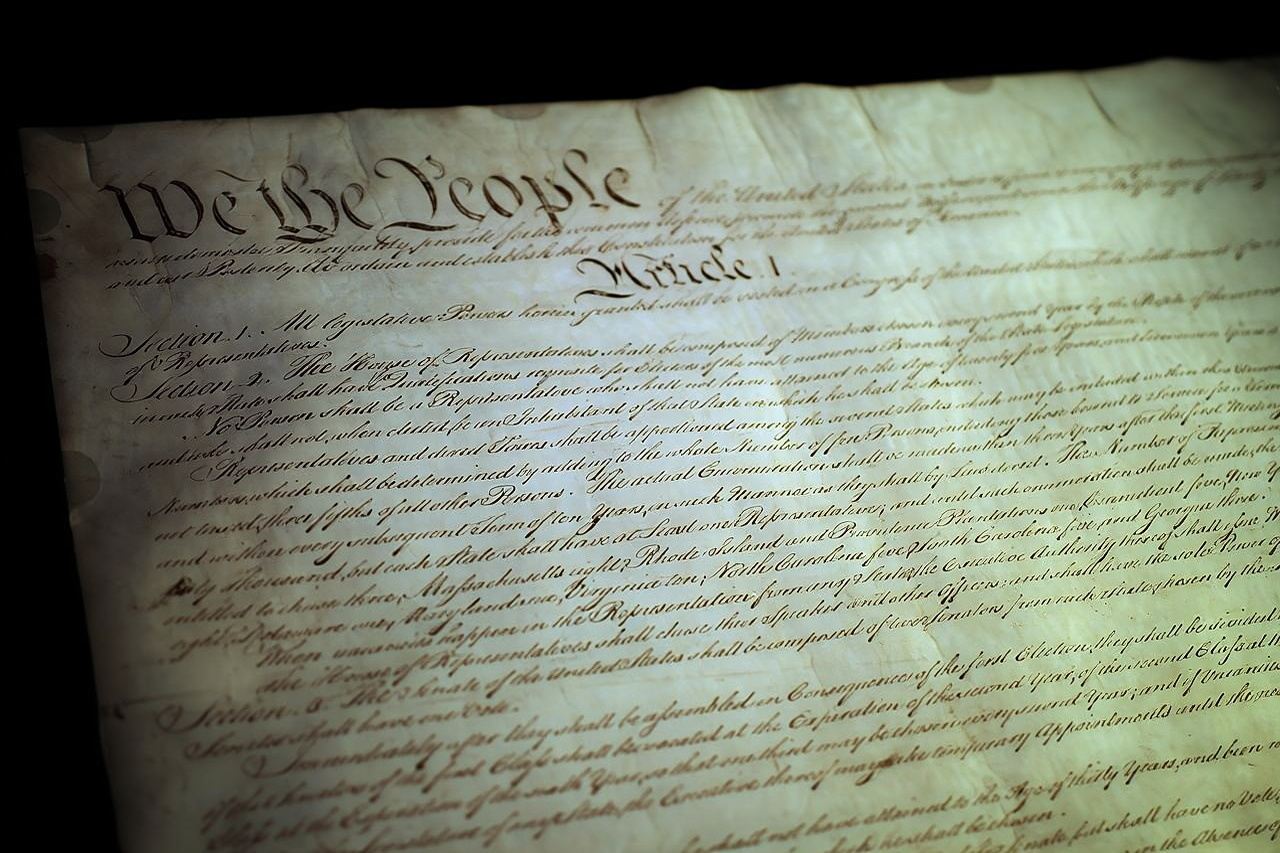 We the People of the United States
insure domestic Tranquility, provide for the common defence, promote the
and our Posterity, do ordain and establish this Constitution for the United States of America.
Article. I.
Section. 1. All legislative Powers herein granted shall be vested in a Congress of the United States, which shall consist of
of Representatives.
Section. 2. The House of Representatives shall be composed of Members chosen every second Year by the People of the several
in each State shall have Qualifications requisite for Electors of the most numerous Branch of the State Legislature.
No Person shall be a Representative who shall not have attained to the Age of twenty five Years, and been seven Years
and who shall not, when elected, be an Inhabitant of that State in which he shall be chosen.
Representatives and direct Taxes shall be apportioned among the several States which may be included within this Union,
Numbers, which shall be determined by adding to the whole Number of free Persons, including those bound to Service for a Term
not taxed, three fifths of all other Persons. The actual Enumeration shall be made within three Years after the first Meeting
and within every subsequent Term of ten Years, in such Manner as they shall by Law direct. The Number of
thirty Thousand, but each State shall have at Least one Representative; and until such enumeration shall be made, the
entitled to chuse three, Massachusetts eight, Rhode Island and Providence Plantations one, Connecticut five, New
eight, Delaware one, Maryland six, Virginia ten, North Carolina five, South Carolina five, and Georgia three.
When vacancies happen in the Representation from any State, the Executive Authority thereof shall issue
the House of Representatives shall chuse their Speaker and other Officers; and shall have the sole Power of
Section. 3. The Senate of the United States shall be composed of two Senators from each State, chosen by the
Senator shall have one Vote.
Immediately after they shall be assembled in Consequence of the first Election, they shall be divided
of the Senators of the first Class shall be vacated at the Expiration of the second Year, of the second Class at
Class at the Expiration of the sixth Year, so that one third may be chosen every second Year; and if Vacancies
of any State, the Executive thereof may make temporary Appointments until the
shall not have attained to the Age of thirty Years, and been
he shall be chosen.
shall have no Vote,
in the Absence of